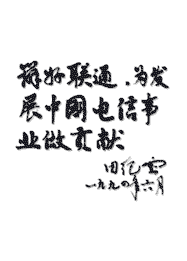 办好联通，为发
展中國电信事
业做贡献
田纪云
一九九四年六月